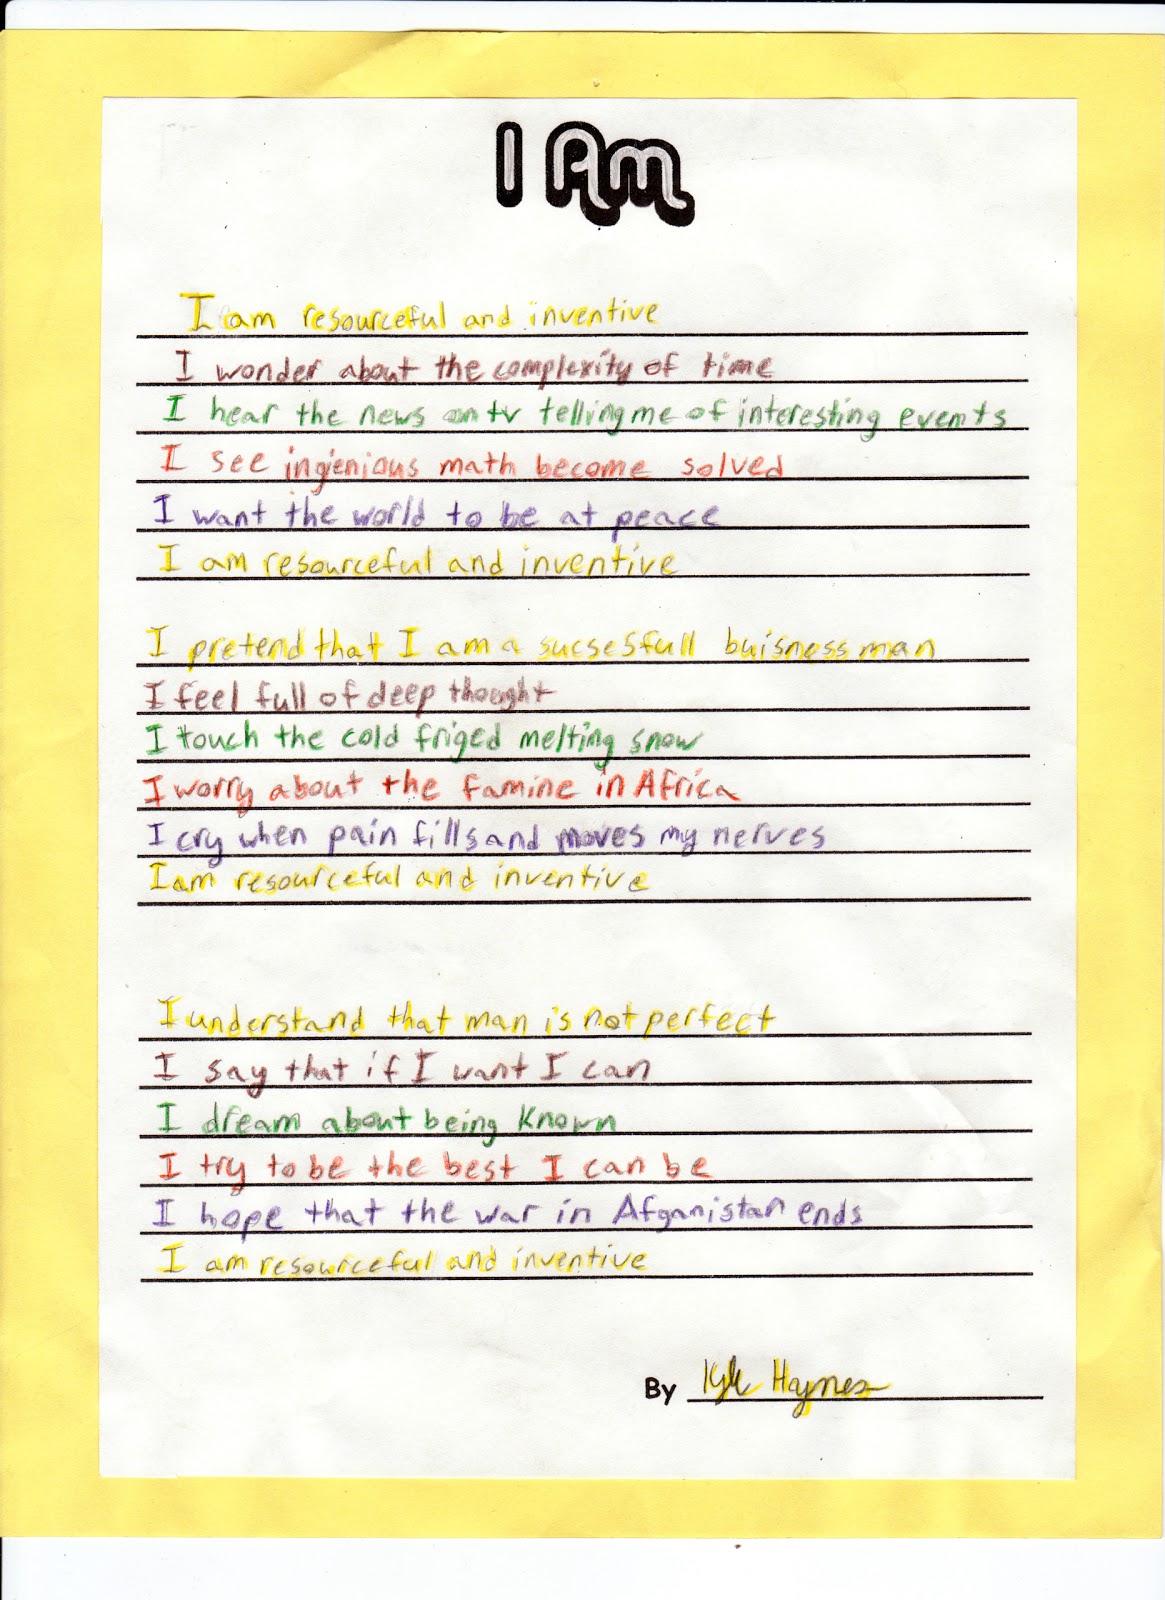 I Am
I am resourceful and inventive
I wonder about the complexity of time
I hear the news on tv telling me of interesting events
I see ingienious math become solved
I want the world to be at peace
I am resourceful and inventive
I pretend that I am a sucsesfull buisness man
I feel full of deep thought
I touch the cold friged melting snow
I worry about the famine in Africa
I cry when pain fills and moves my nerves
I am resourceful and inventive
I understand that man is not perfect
I say that if I want I can
I dream about being known
I try to be the best I can be
I hope that the war in Afganistan ends
I am resourceful and inventive
By Kyle Haynes